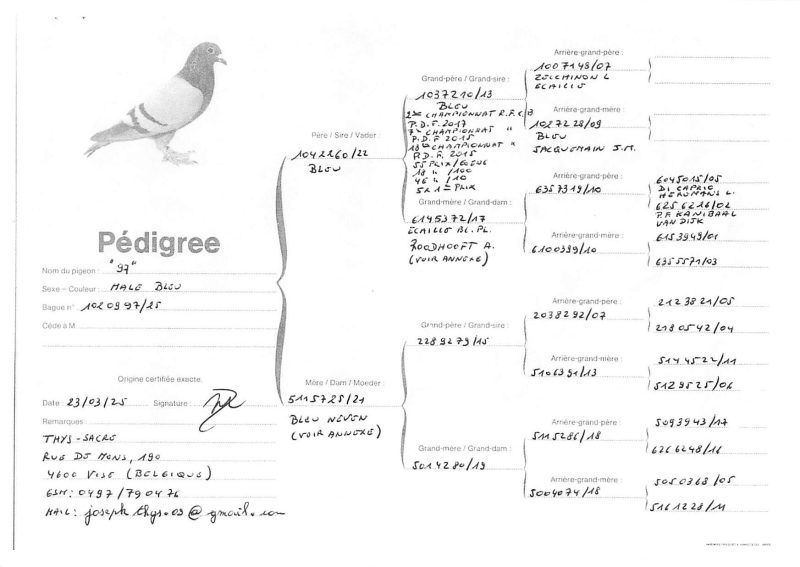 Pédigree
Nom du pigeon : "97"
Sexe – Couleur : MALE BLEU
Bague n° : 1020997/25
Cédé à M.
Origine certifiée exacte.
Date : 23/03/25 Signature :
Remarques :
THYS-SACRE
RUE DE MONS, 190
4600 VISE (BELGIQUE)
GSM: 0497/790476
MAIL: joseph.thys.09@gmail.com
Père / Sire / Vader :
1042260/22
BLEU
Mère / Dam / Moeder :
5115725/21
BLEU NEVEN
(VOIR ANNEXE)
Grand-père / Grand-sire :
1037210/13
BLEU
2me CHAMPIONNAT R.F.C.B
P.D.F. 2017
7me CHAMPIONNAT "
P.D.F 2015
18me CHAMPIONNAT "
P.D.F. 2015
55 PRIX/
18 " /100
46 " /10
5 x 1er PRIX
Grand-mère / Grand-dam :
6145372/17
ECAILLE BL. PL.
ROODHOOFT A.
(VOIR ANNEXE)
Grand-père / Grand-sire :
2289279/15
Grand-mère / Grand-dam :
5014280/19
Arrière-grand-père :
1007148/07
ZELCHINON L
ECAILLE
Arrière-grand-mère :
1027228/09
BLEU
JACQUEMAIN J.M.
Arrière-grand-père :
6357319/10
Arrière-grand-mère :
6100399/10
Arrière-grand-père :
2038292/07
Arrière-grand-mère :
5106391/13
Arrière-grand-père :
5115286/18
Arrière-grand-mère :
5004074/18
6045015/05
DI CAPRIO
HEREMANS L.
6256216/02
P.F KANIBAAL
VAN DIJK
6153949/01
6355571/03
2123821/05
2180542/04
5144522/11
5129525/06
5093943/17
6266248/16
5050368/05
5161228/11